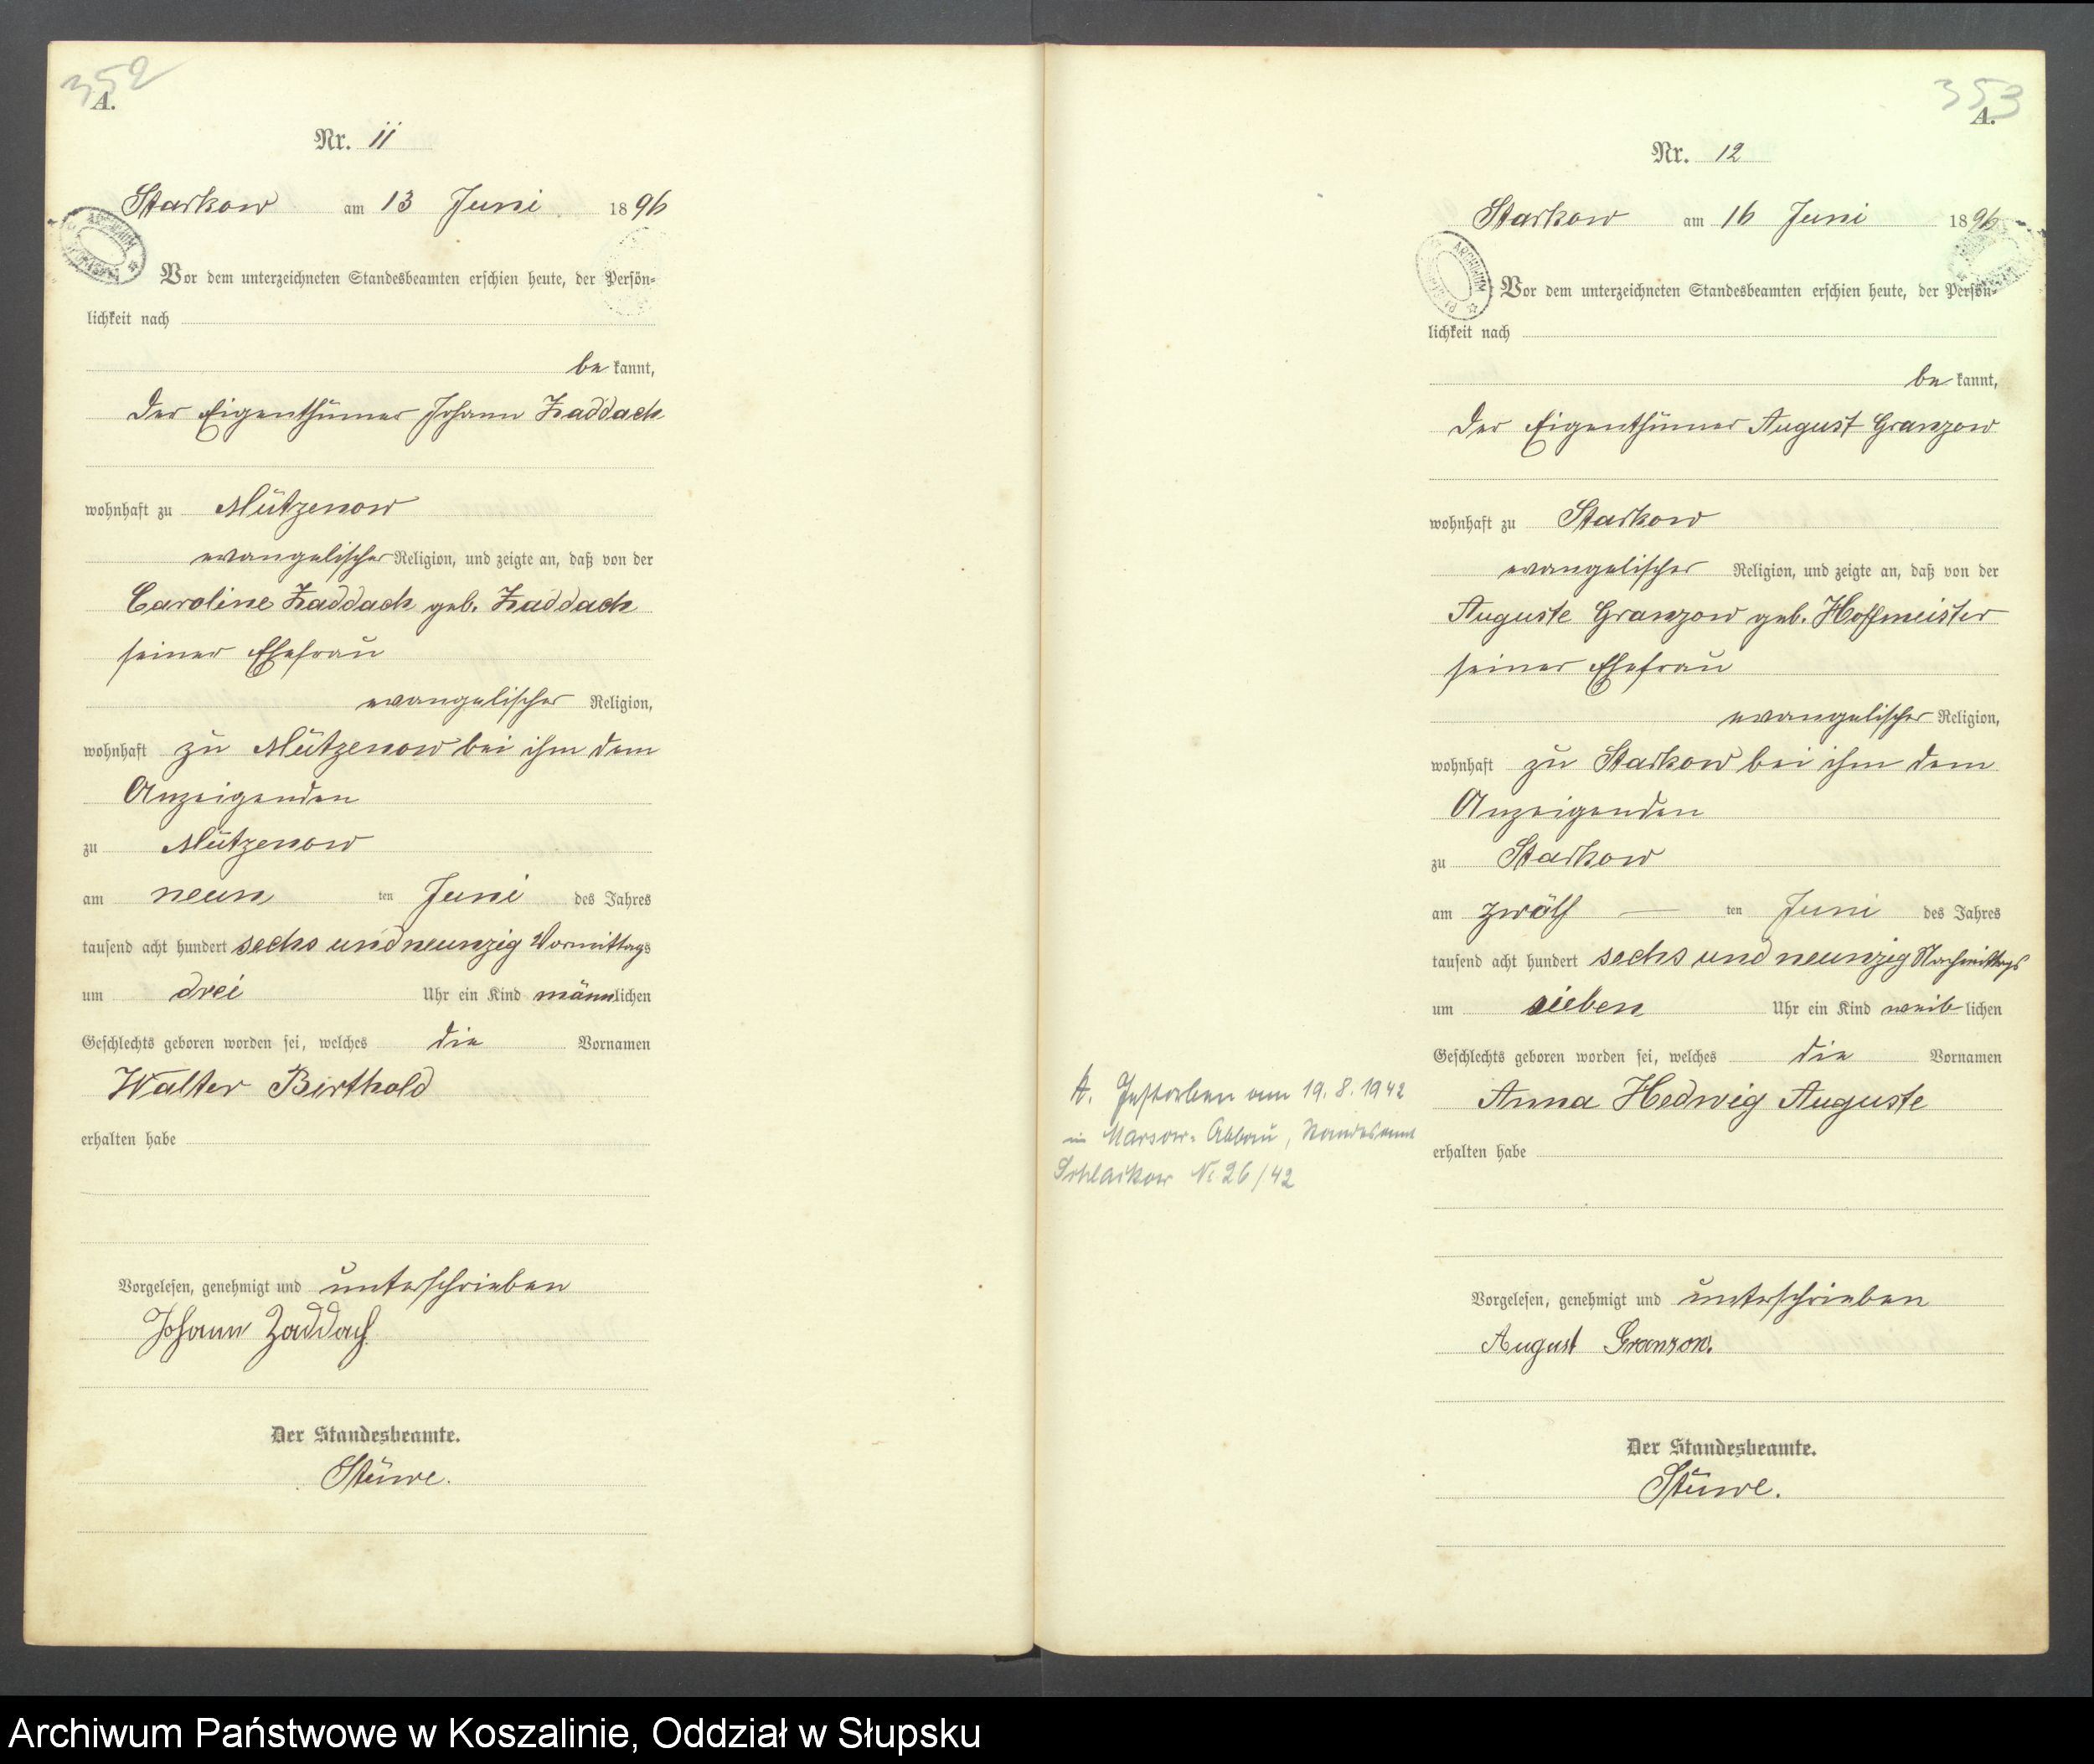 352
A.
Nr. 11
Starkow am 13 Juni 1896
Vor dem unterzeichneten Standesbeamten erschien heute, der Persön-
lichkeit nach
be kannt,
der Eigenthümer Johann Zaddach
wohnhaft zu Mützenow
evangelischer Religion, und zeigte an, daß von der
Caroline Zaddach geb. Zaddach
seiner Ehefrau
evangelischer Religion,
wohnhaft zu Mützenow bei ihm dem
Anzeigenden
zu Mützenow
am neun ten Juni des Jahres
tausend acht hundert sechs und neunzig Vormittags
um drei Uhr ein Kind männlichen
Geschlechts geboren worden sei, welches die Vornamen
Walter Berthold
erhalten habe
Vorgelesen, genehmigt und unterschrieben
Johann Zaddach
Der Standesbeamte.
Stüwe.
353
A.
Nr. 12
Starkow am 16 Juni 1896
ARCHIWUM
Vor dem unterzeichneten Standesbeamten erschien heute, der Persön-
lichkeit nach
be kannt,
der Eigenthümer August Granzow
wohnhaft zu Starkow
evangelischer Religion, und zeigte an, daß von der
Auguste Granzow geb. Hoffmeister
seiner Ehefrau
evangelischer Religion,
wohnhaft zu Starkow bei ihm dem
Anzeigenden
zu Starkow
am zwölf — ten Juni des Jahres
tausend acht hundert sechs und neunzig Nachmittags
um sieben Uhr ein Kind weib lichen
Geschlechts geboren worden sei, welches die Vornamen
Anna Hedwig Auguste
erhalten habe
A. Gestorben am 19. 8. 1942
in Marsow-Abbau, Standesamt
Schlackow Nr. 26/42
Vorgelesen, genehmigt und unterschrieben
August Granzow.
Der Standesbeamte.
Stüwe.
Archiwum Państwowe w Koszalinie, Oddział w Słupsku